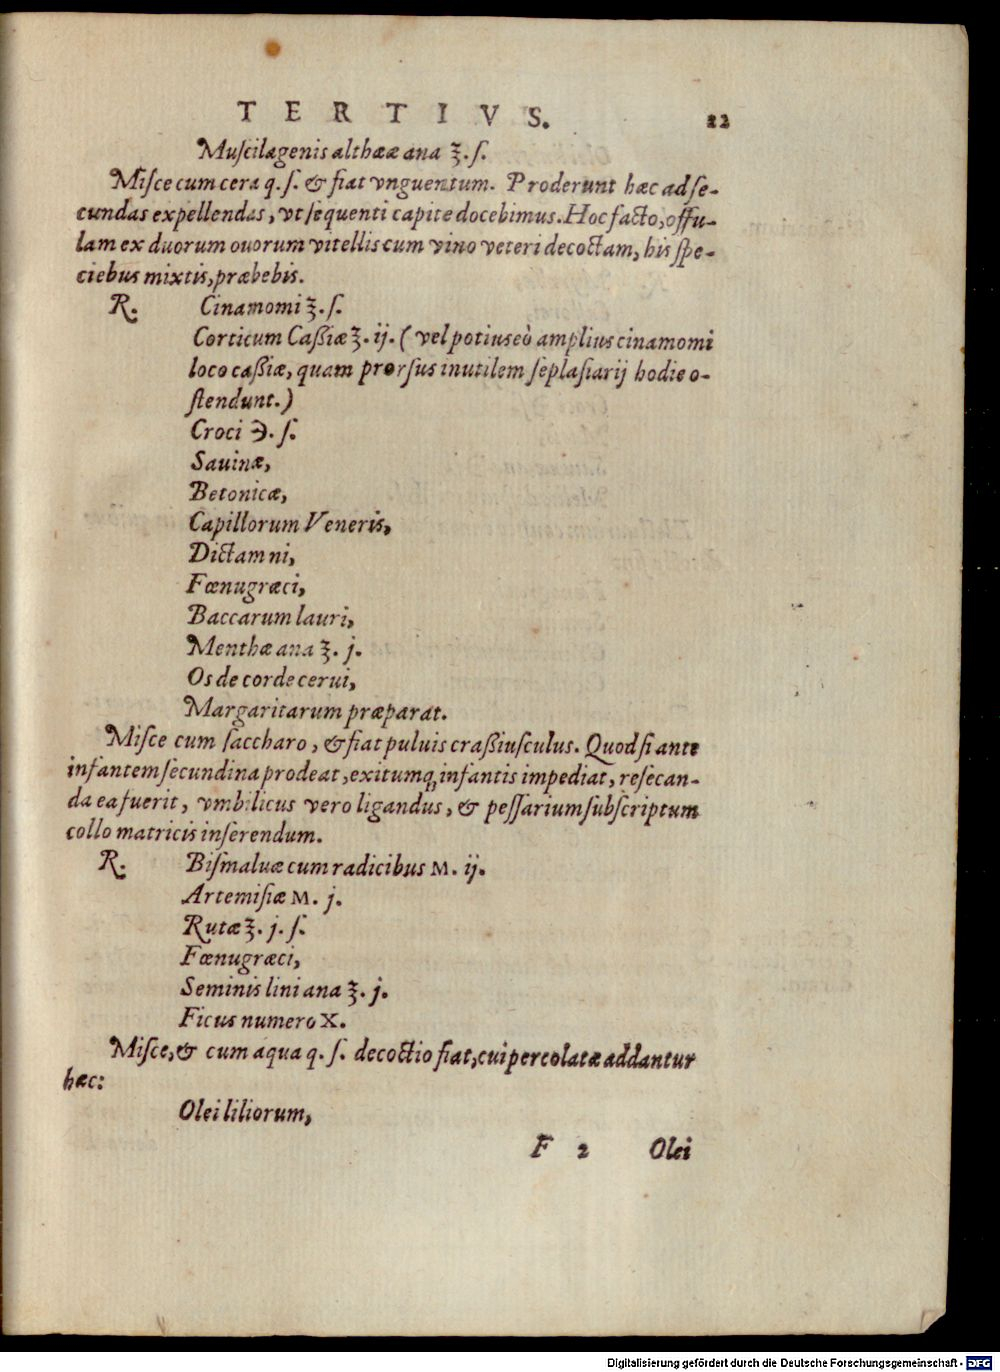 TERTIVS. 22
Muſcilagenis althææ ana ʒ. ſ.
Miſce cum cera q. ſ. & fiat vnguentum. Proderunt hæc ad ſe-
cundas expellendas, vt ſequenti capite docebimus. Hoc facto, offu-
lam ex duorum ouorum vitellis cum vino veteri decoctam, his ſpe-
ciebus mixtis, præbebis.
R. Cinamomi ʒ. ſ.
Corticum Caßiæ ʒ. ij. (vel potius eò amplius cinamomi
loco caßiæ, quam prorſus inutilem ſeplaſiarij hodie o-
ſtendunt.)
Croci ℈. ſ.
Sauinæ,
Betonicæ,
Capillorum Veneris,
Dictamni,
Fœnugræci,
Baccarum lauri,
Menthæ ana ʒ. j.
Os de corde cerui,
Margaritarum præparat.
Miſce cum ſaccharo, & fiat puluis craßiuſculus. Quod ſi ante
infantem ſecundina prodeat, exitumq; infantis impediat, reſecan-
da ea fuerit, vmbilicus vero ligandus, & peſſarium ſubſcriptum
collo matricis inſerendum.
R. Biſmaluæ cum radicibus M. ij.
Artemiſiæ M. j.
Rutæ ʒ. j. ſ.
Fœnugræci,
Seminis lini ana ʒ. j.
Ficus numero X.
Miſce, & cum aqua q. ſ. decoctio fiat, cui percolatæ addantur
hæc:
Olei liliorum,
F 2 Olei
Digitalisierung gefördert durch die Deutsche Forschungsgemeinschaft - DFG